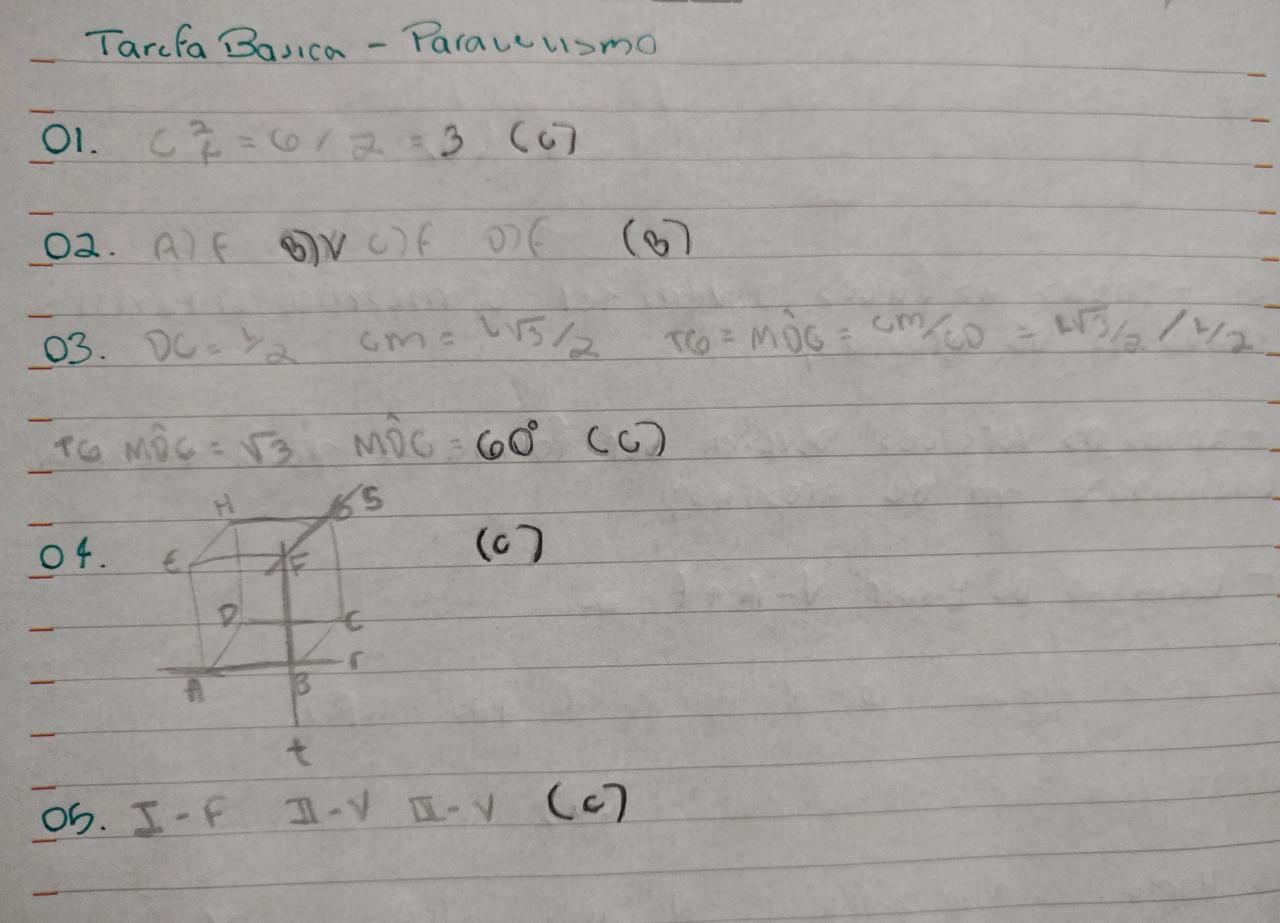 Tarefa Basica - Paralelismo
01. C 2/F = 6 / 2 = 3 (C)
02. A) F B) V C) F D) F (B)
03. DC = L/2 CM = L√3/2 TG = MÔC = CM/CD = L√3/2 / L/2
TG MÔC = √3 MÔC = 60° (C)
H G S
04. E F (C)
D C
A B r
t
05. I - F II - V III - V (C)